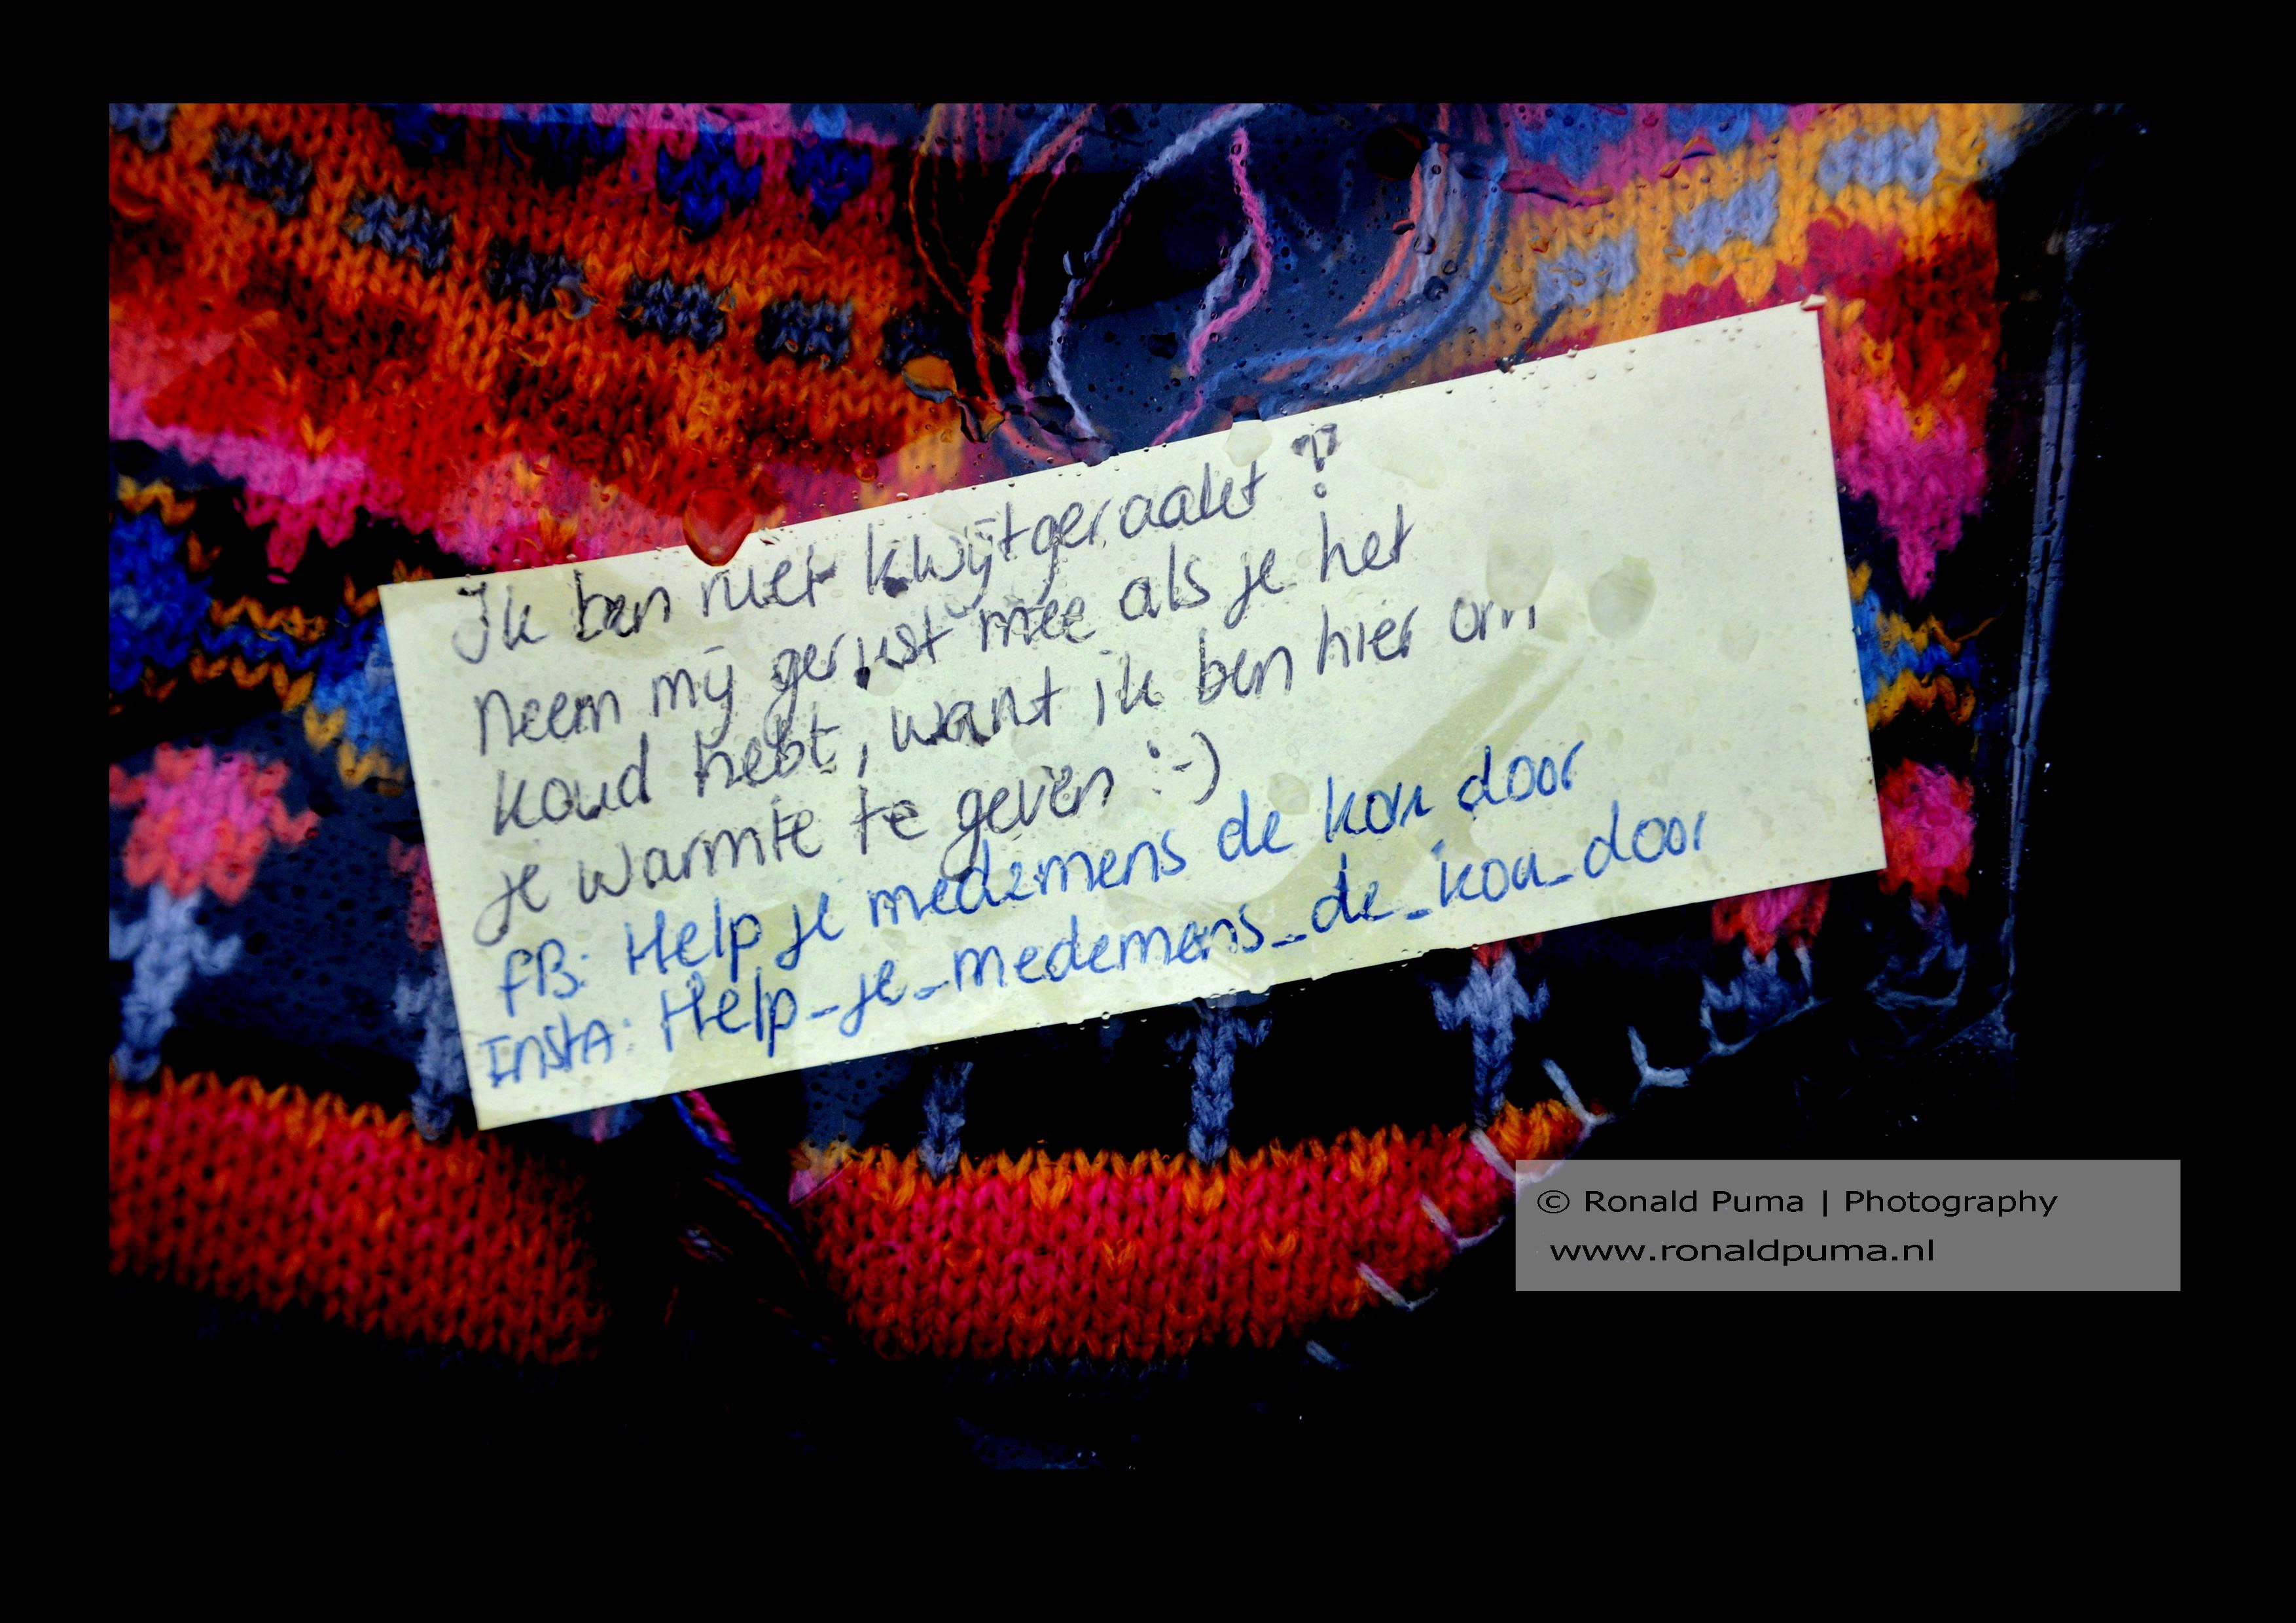 Ik ben niet kwijtgeraakt ?
Neem mij gerust mee als je het
koud hebt, want ik ben hier om
je warmte te geven :-)
FB: Help je medemens de kou door
Insta: Help_je_medemens_de_kou_door
© Ronald Puma | Photography
www.ronaldpuma.nl